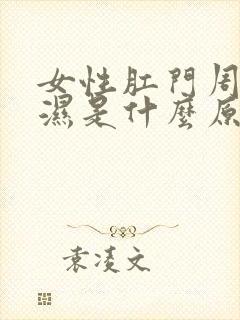 女性肛門周
濕是什麼原
袁凌文